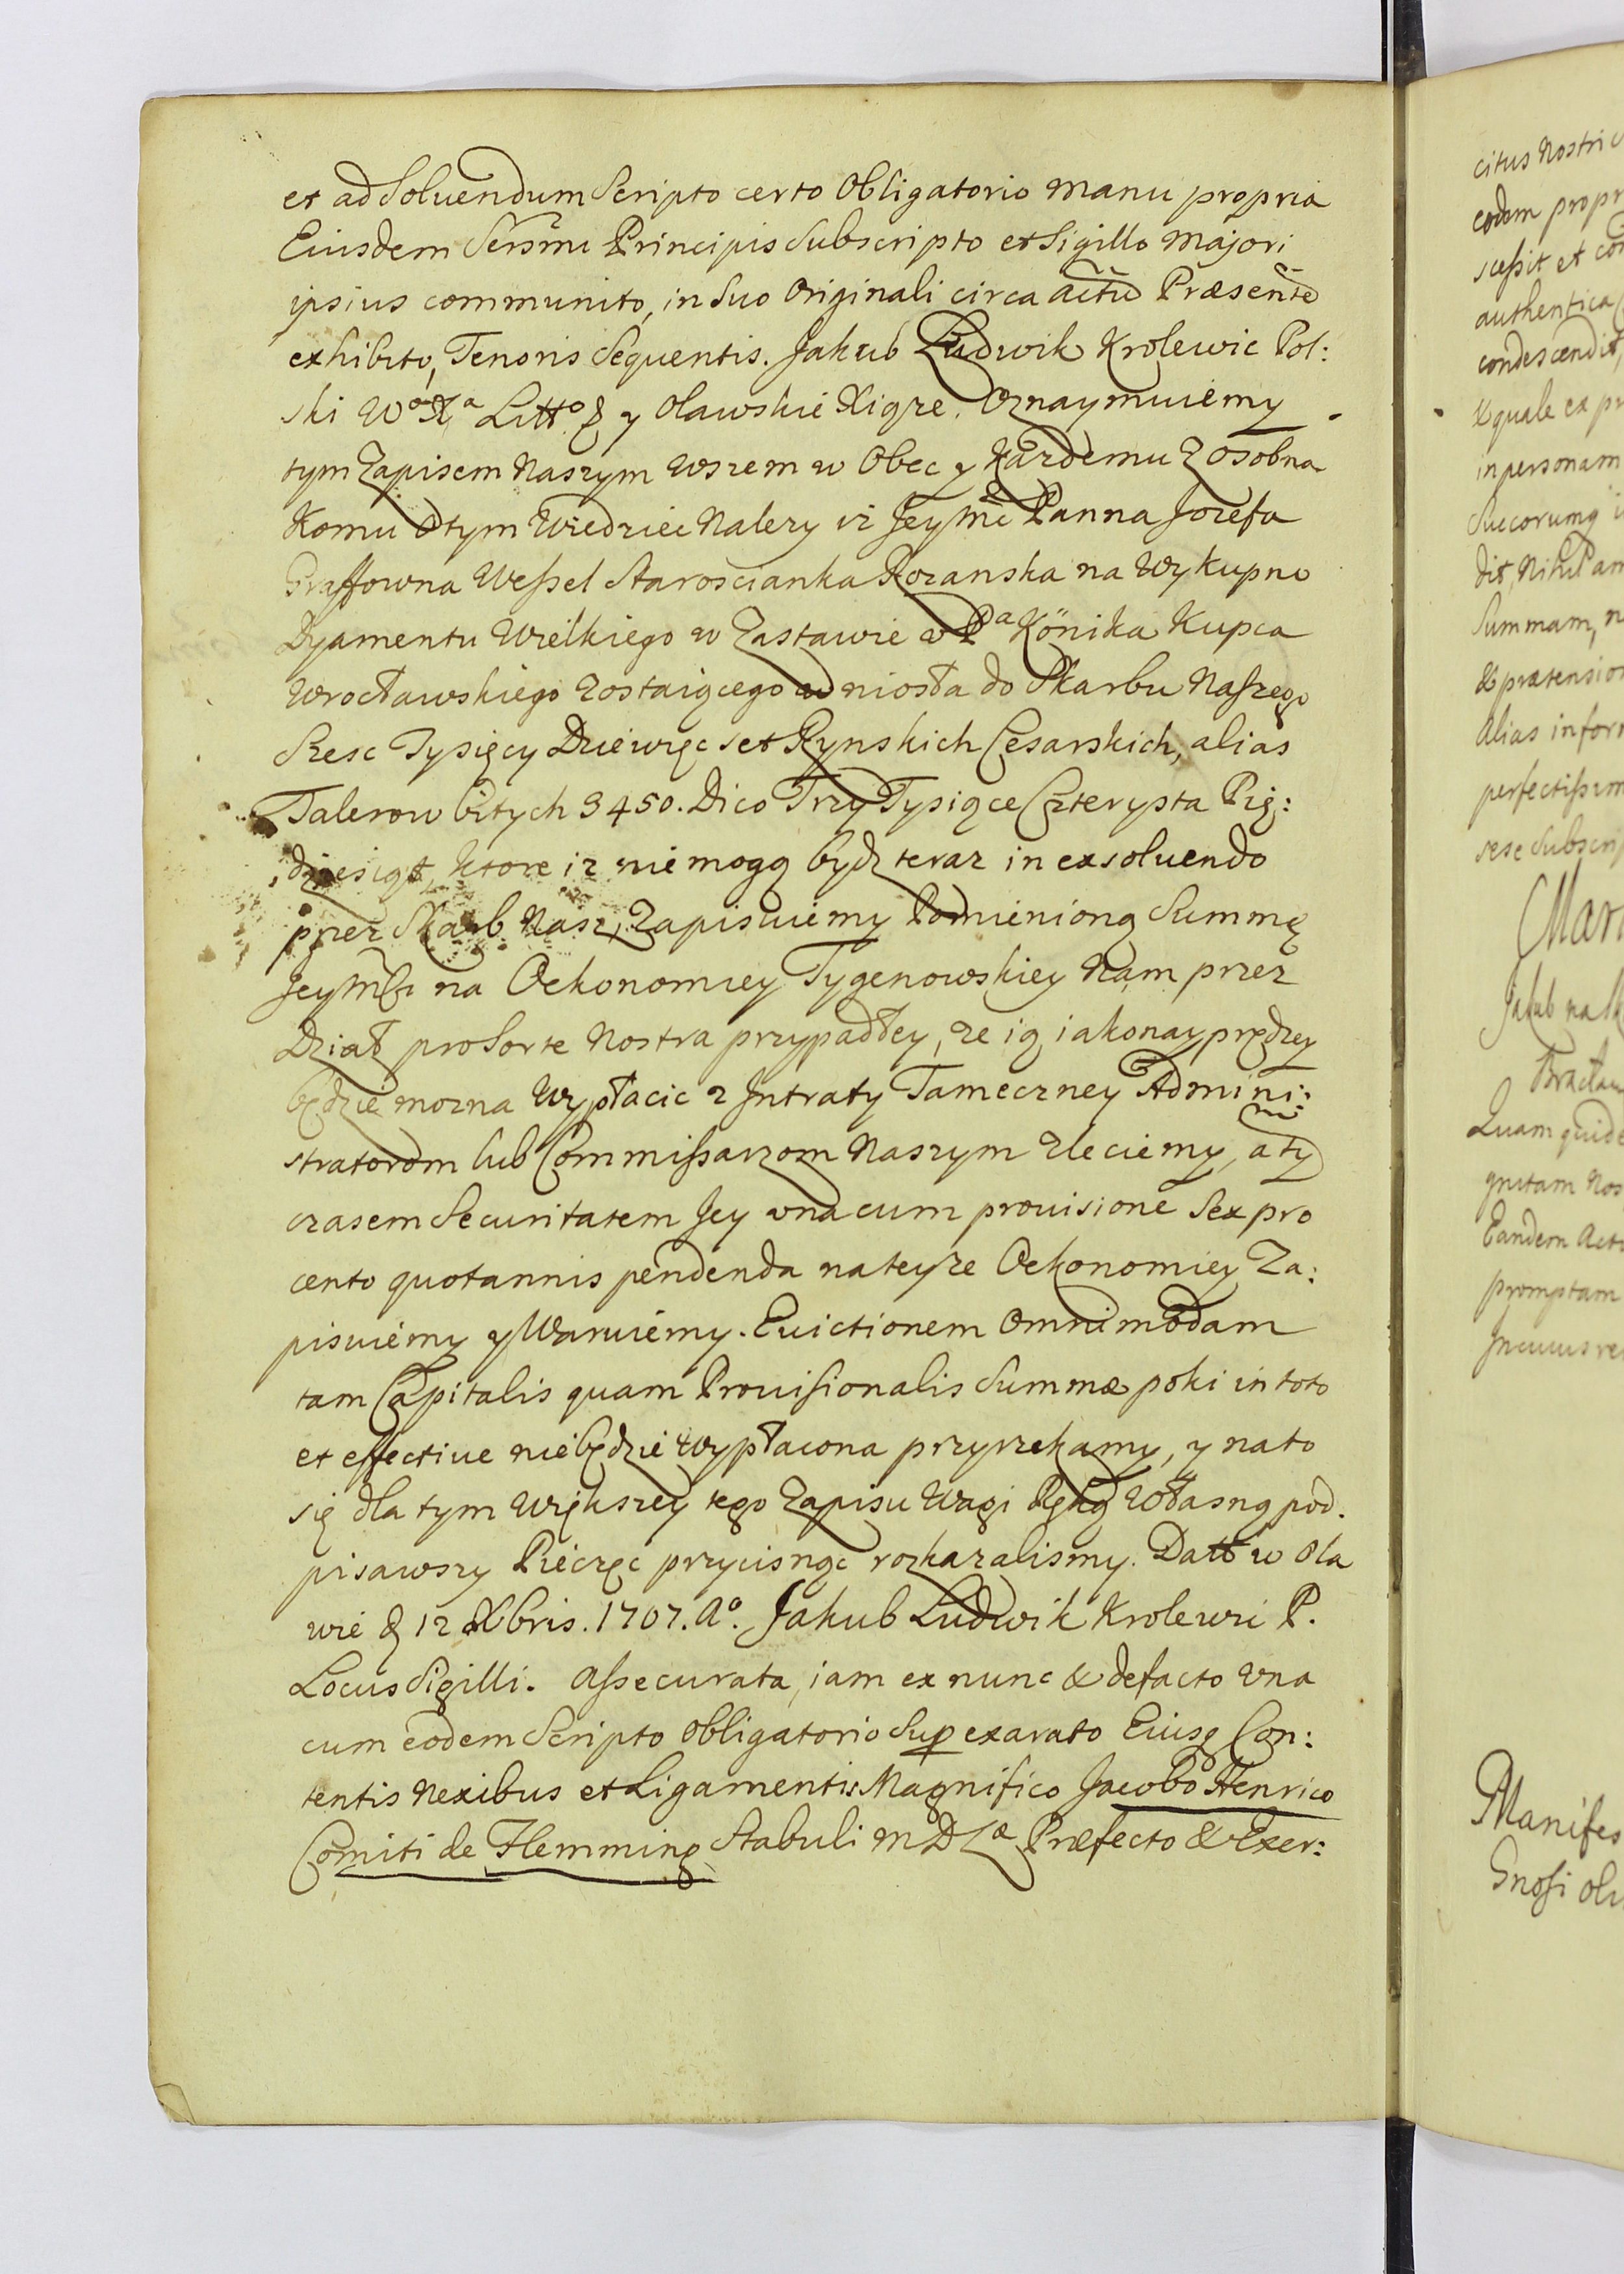 et ad Soluendum Scripto certo Obligatorio manu propria
Eiusdem Sersmi Principis Subscripto et Sigillo Majori
ipsius communito, in Suo Originali circa actu Præsente
exhibito, Tenoris Sequentis. Jakub Ludwik Krolewic Pol:
ski Wo Xa Litto & y Olawskie Xiąze. Oznaymuiemy
tym Zapisem Naszym Wszem w Obec y Kazdemu Zosobna
Komu Otym Wiedziec Nalezy iz Jeymć Panna Jozefa
Graffowna Wessel Staroscianka Rozanska na Wykupno
Dyamentu Wielkiego w Zastawie v Pa Könika Kupca
Wrocławskiego zostaiącego wniosła do Skarbu Naszego
Szesc Tysięcy Dziewięc set Rynskich Cesarskich, alias
Talerow bitych 3450. Dico Trzy Tysiące Czterysta Pię:
dziesiąt, ktore iz nie mogą bydz teraz in exsoluendo
przez Skarb Nasz, Zapisuiemy Pomienioną Summę
Jeymći na Oekonomiey Tygenowskiey Nam przez
Dział pro Sorte Nostra przypadłey, ze ią iakonayprędzey
będzie mozna Wypłacic z Jntraty Tameczney Admini:
stratorom lub Commissarzom Naszym zleciemy, a tym
czasem Securitatem Jey vna cum prouisione Sex pro
cento quotannis pendenda na teyze Oekonomiey Za:
pisuiemy y Waruiemy. Euictionem Omnimodam
tam Capitalis quam Prouisionalis Summæ poki in toto
et effectiue niebędzie wypłacona przyrzekamy, y na to
się dla tym Większey tego Zapisu Wagi Ręką Własną pod.
pisawszy Pieczęc przycisnąc rozkazalismy. Datt w Ola
wie & 12 Xbris. 1707. Ao. Jakub Ludwik Krolewic P.
Locus Sigilli. Assecurata, iam ex nunc & defacto Vna
cum eodem Scripto Obligatorio Sup exarato Eiusq Con:
tentis Nexibus et Ligamentis Magnifico Jacobo Henrico
Comiti de Flemming Stabuli M D L Præfecto & Exer:
citus Nostri
eodem propr
scessit et
authentica
condescendit,
& quale ex
in personam
Succorumq
dit, Nihil
Summam,
& prætension
Alias
perfectissim
sese Subscri
Jakub
Quam
gnitam
Eandem
promptam
Manifes